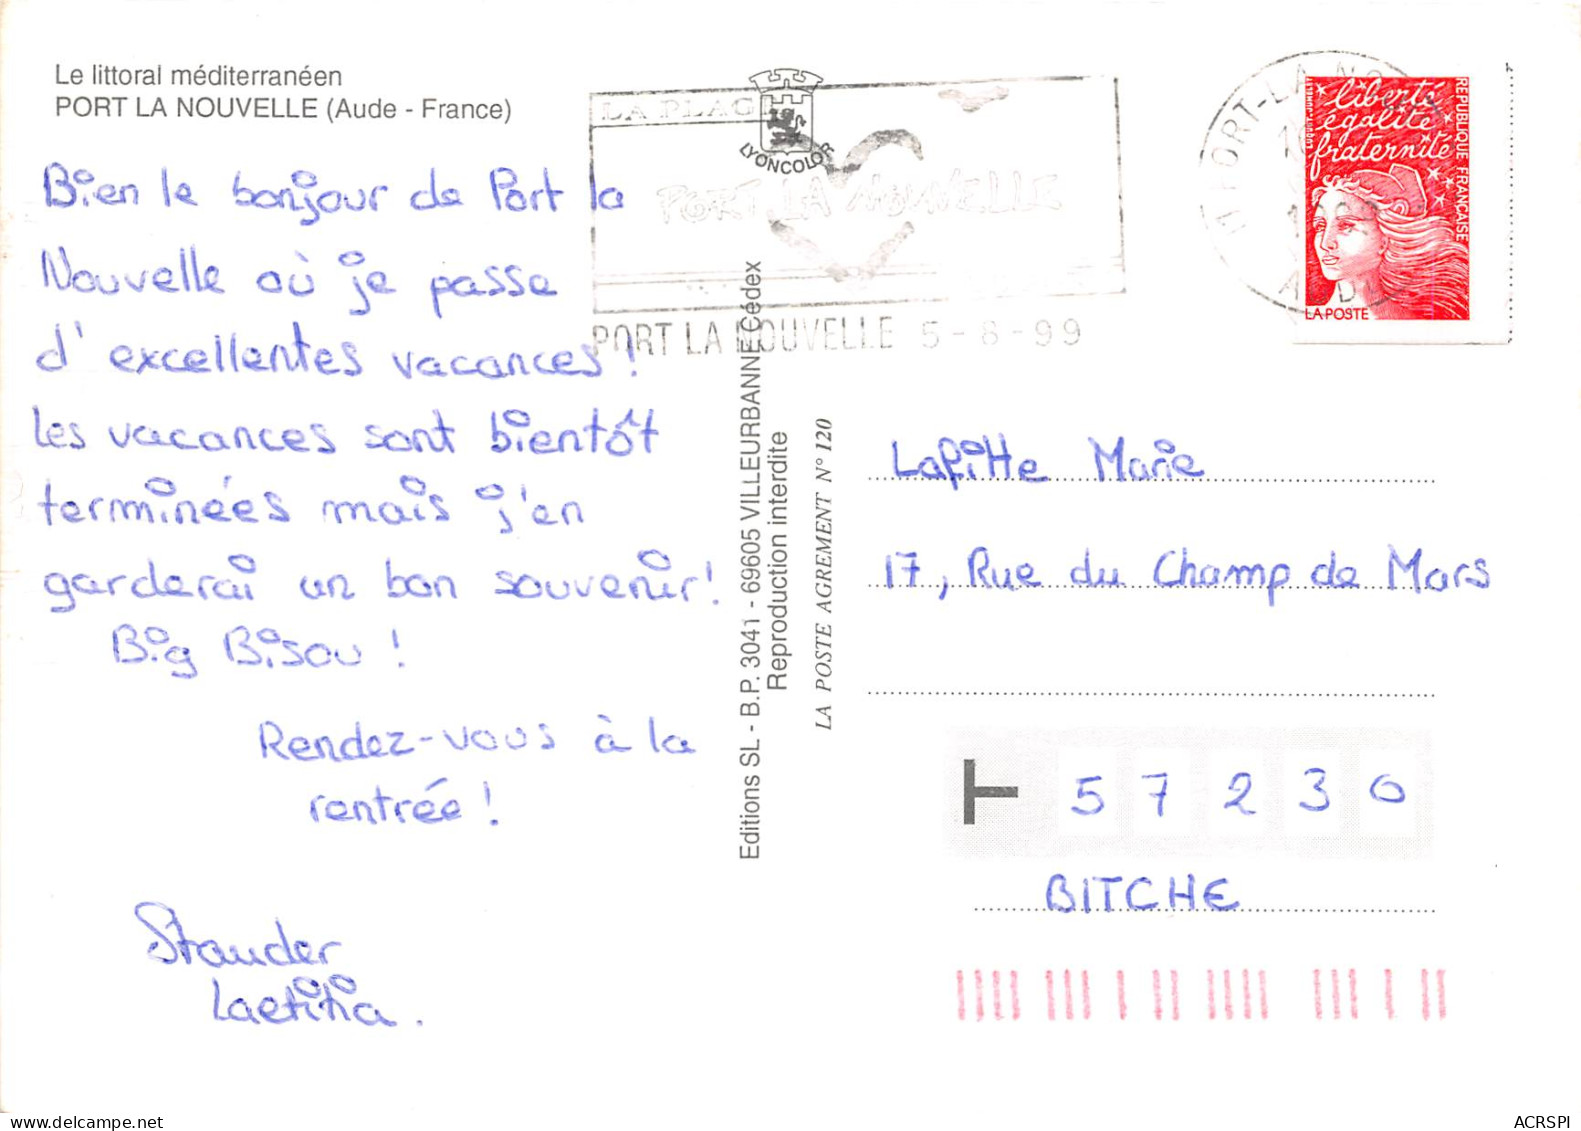 Le littoral méditerranéen
PORT LA NOUVELLE (Aude - France)
Bien le bonjour de Port la
Nouvelle où je passe
d'excellentes vacances !
Les vacances sont bientôt
terminées mais j'en
garderai un bon souvenir !
Big Bisou !
Rendez-vous à la
rentrée !
Stauder
Laetitia.
LA PLAGE
LYONCOLOR
PORT LA NOUVELLE
PORT LA NOUVELLE 5-8-99
Editions SL - B.P. 3041 - 69605 VILLEURBANNE Cédex
Reproduction interdite
LA POSTE AGREMENT N° 120
liberté
égalité
fraternité
REPUBLIQUE FRANÇAISE
LA POSTE
Lafitte Marie
17, Rue du Champ de Mars
57230
BITCHE
ACRSPI